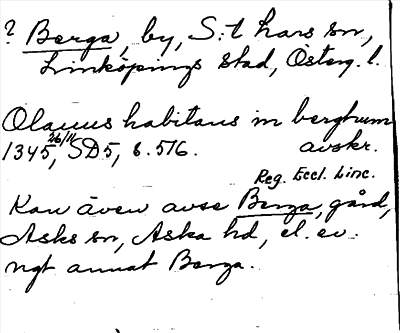 ? Berga, by, S:t Lars sn,
Linköpings stad, Österg. l.
Olauus habitans in berghum
1345 26/11, SD5, s. 516. avskr.
Reg. Eccl. Linc.
Kan även avse Berga, gård,
Asks sn, Aska hd, el. ev.
ngt annat Berga.